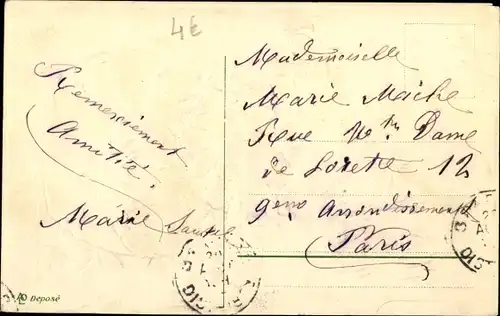 4€
Remerciement
Amitié.
Marie
Mademoiselle
Marie Mache
Rue Nᵗʳᵉ Dame
de Lorette 12
9ème Arrondissement
Paris
Deposé